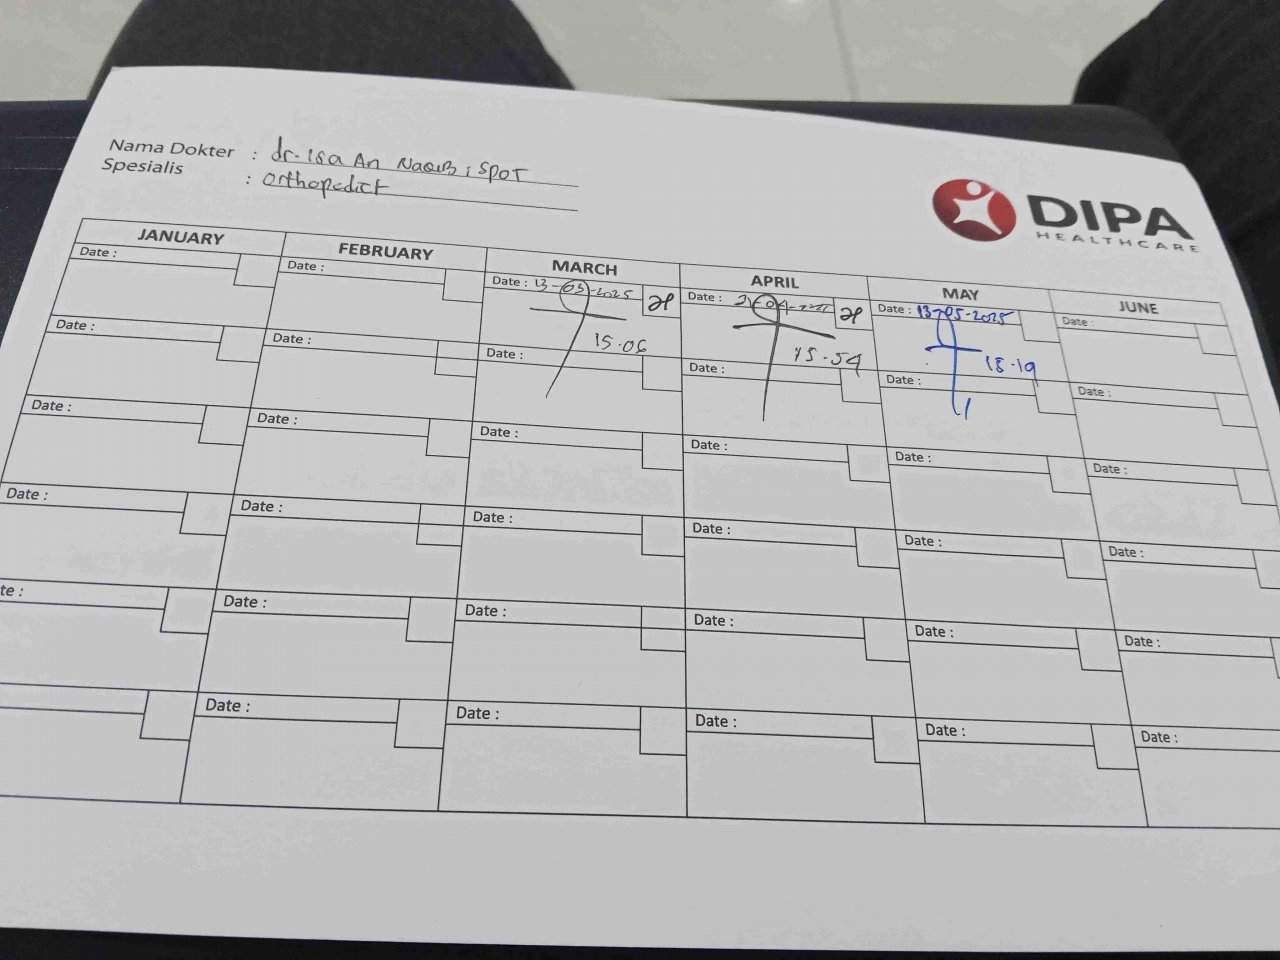 Nama Dokter : dr. Isa An Naqib, SpOT
Spesialis : Orthopedict
DIPA
HEALTHCARE
JANUARY FEBRUARY MARCH APRIL MAY JUNE
Date : Date : Date : 13-03-2025 Date : Date : 13-05-2025 Date :
15.06 15.54 18.19
Date : Date : Date : Date : Date : Date :
Date : Date : Date : Date : Date : Date :
Date : Date : Date : Date : Date : Date :
te : Date : Date : Date : Date : Date :
Date : Date : Date : Date : Date :